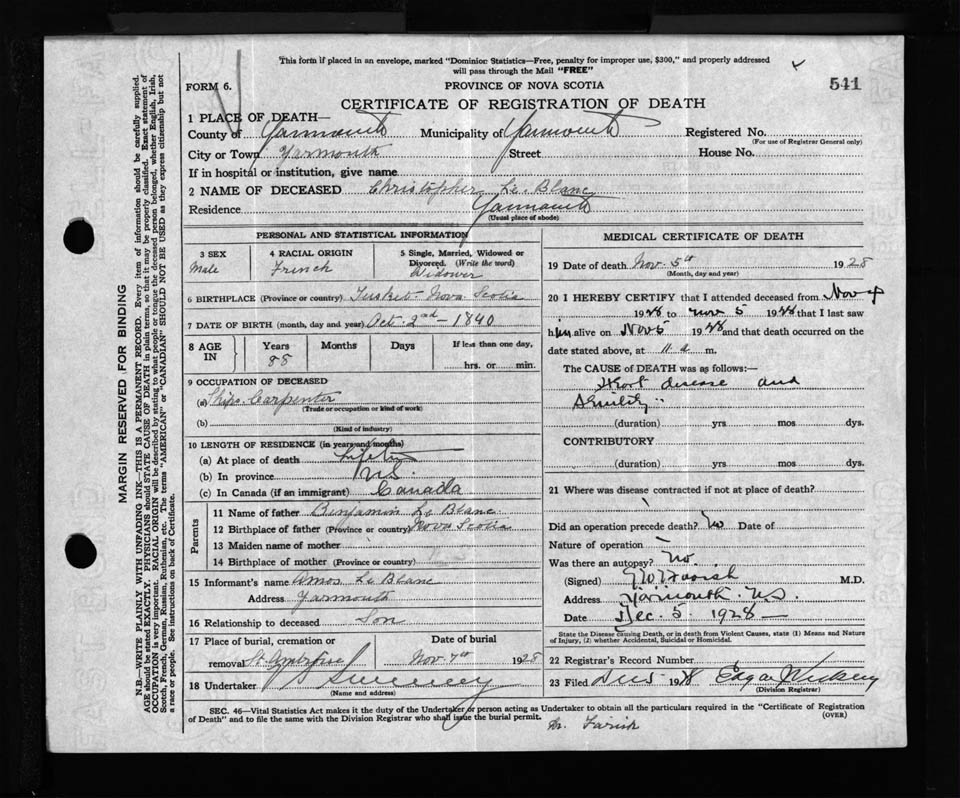 This form if placed in an envelope, marked "Dominion Statistics—Free, penalty for improper use, $300," and properly addressed
will pass through the Mail "FREE"
FORM 6.
PROVINCE OF NOVA SCOTIA
541
CERTIFICATE OF REGISTRATION OF DEATH
1 PLACE OF DEATH—
County of Yarmouth Municipality of Yarmouth Registered No.
(For use of Registrar General only)
City or Town Yarmouth Street House No.
If in hospital or institution, give name
2 NAME OF DECEASED Christopher Le Blanc
Residence Yarmouth
(Usual place of abode)
PERSONAL AND STATISTICAL INFORMATION
3 SEX 4 RACIAL ORIGIN 5 Single, Married, Widowed or
Divorced. (Write the word)
Male French Widower
6 BIRTHPLACE (Province or country) Tusket Nova Scotia
7 DATE OF BIRTH (month, day and year) Oct. 2nd — 1840
8 AGE IN Years Months Days If less than one day,
88 hrs. or min.
9 OCCUPATION OF DECEASED
(a) Ships Carpenter
(Trade or occupation or kind of work)
(b)
(Kind of industry)
10 LENGTH OF RESIDENCE (in years and months)
(a) At place of death Lifetime
(b) In province N.S.
(c) In Canada (if an immigrant) Canada
Parents
11 Name of father Benjamin Le Blanc
12 Birthplace of father (Province or country) Nova Scotia
13 Maiden name of mother
14 Birthplace of mother (Province or country)
15 Informant's name Amos Le Blanc
Address Yarmouth
16 Relationship to deceased Son
17 Place of burial, cremation or Date of burial
removal St. Ambrose Nov 7th 1928
18 Undertaker Sweeney
(Name and address)
MEDICAL CERTIFICATE OF DEATH
19 Date of death Nov. 5th 1928
(Month, day and year)
20 I HEREBY CERTIFY that I attended deceased from Nov 4
1928 to Nov 5 1928 that I last saw
him alive on Nov 5 1928 and that death occurred on the
date stated above, at 11 a m.
The CAUSE of DEATH was as follows:—
Heart disease and
Senility
(duration) yrs mos. dys.
CONTRIBUTORY
(duration) yrs. mos. dys.
21 Where was disease contracted if not at place of death?
Did an operation precede death? No Date of
Nature of operation
Was there an autopsy? No.
(Signed) Farish M.D.
Address Yarmouth. N.S.
Date Dec. 5 1928
State the Disease causing Death, or in death from Violent Causes, state (1) Means and Nature
of Injury, (2) whether Accidental, Suicidal or Homicidal.
22 Registrar's Record Number
23 Filed Dec 5 1928 Edgar
(Division Registrar)
SEC. 46—Vital Statistics Act makes it the duty of the Undertaker or person acting as Undertaker to obtain all the particulars required in the "Certificate of Registration
of Death" and to file the same with the Division Registrar who shall issue the burial permit. (OVER)
Dr. Farish
MARGIN RESERVED FOR BINDING
N.B.—WRITE PLAINLY WITH UNFADING INK—THIS IS A PERMANENT RECORD. Every item of information should be carefully supplied.
AGE should be stated EXACTLY. PHYSICIANS should STATE CAUSE OF DEATH in plain terms, so that it may be properly classified. Exact statement of
OCCUPATION is very important. RACIAL ORIGIN will be described by stating to what people or tongue the deceased person belonged, whether English, Irish,
Scotch, French, German, Russian, Ruthenian, etc. The terms "AMERICAN" or "CANADIAN" SHOULD NOT BE USED as they express citizenship but not
a race or people. See instructions on back of Certificate.